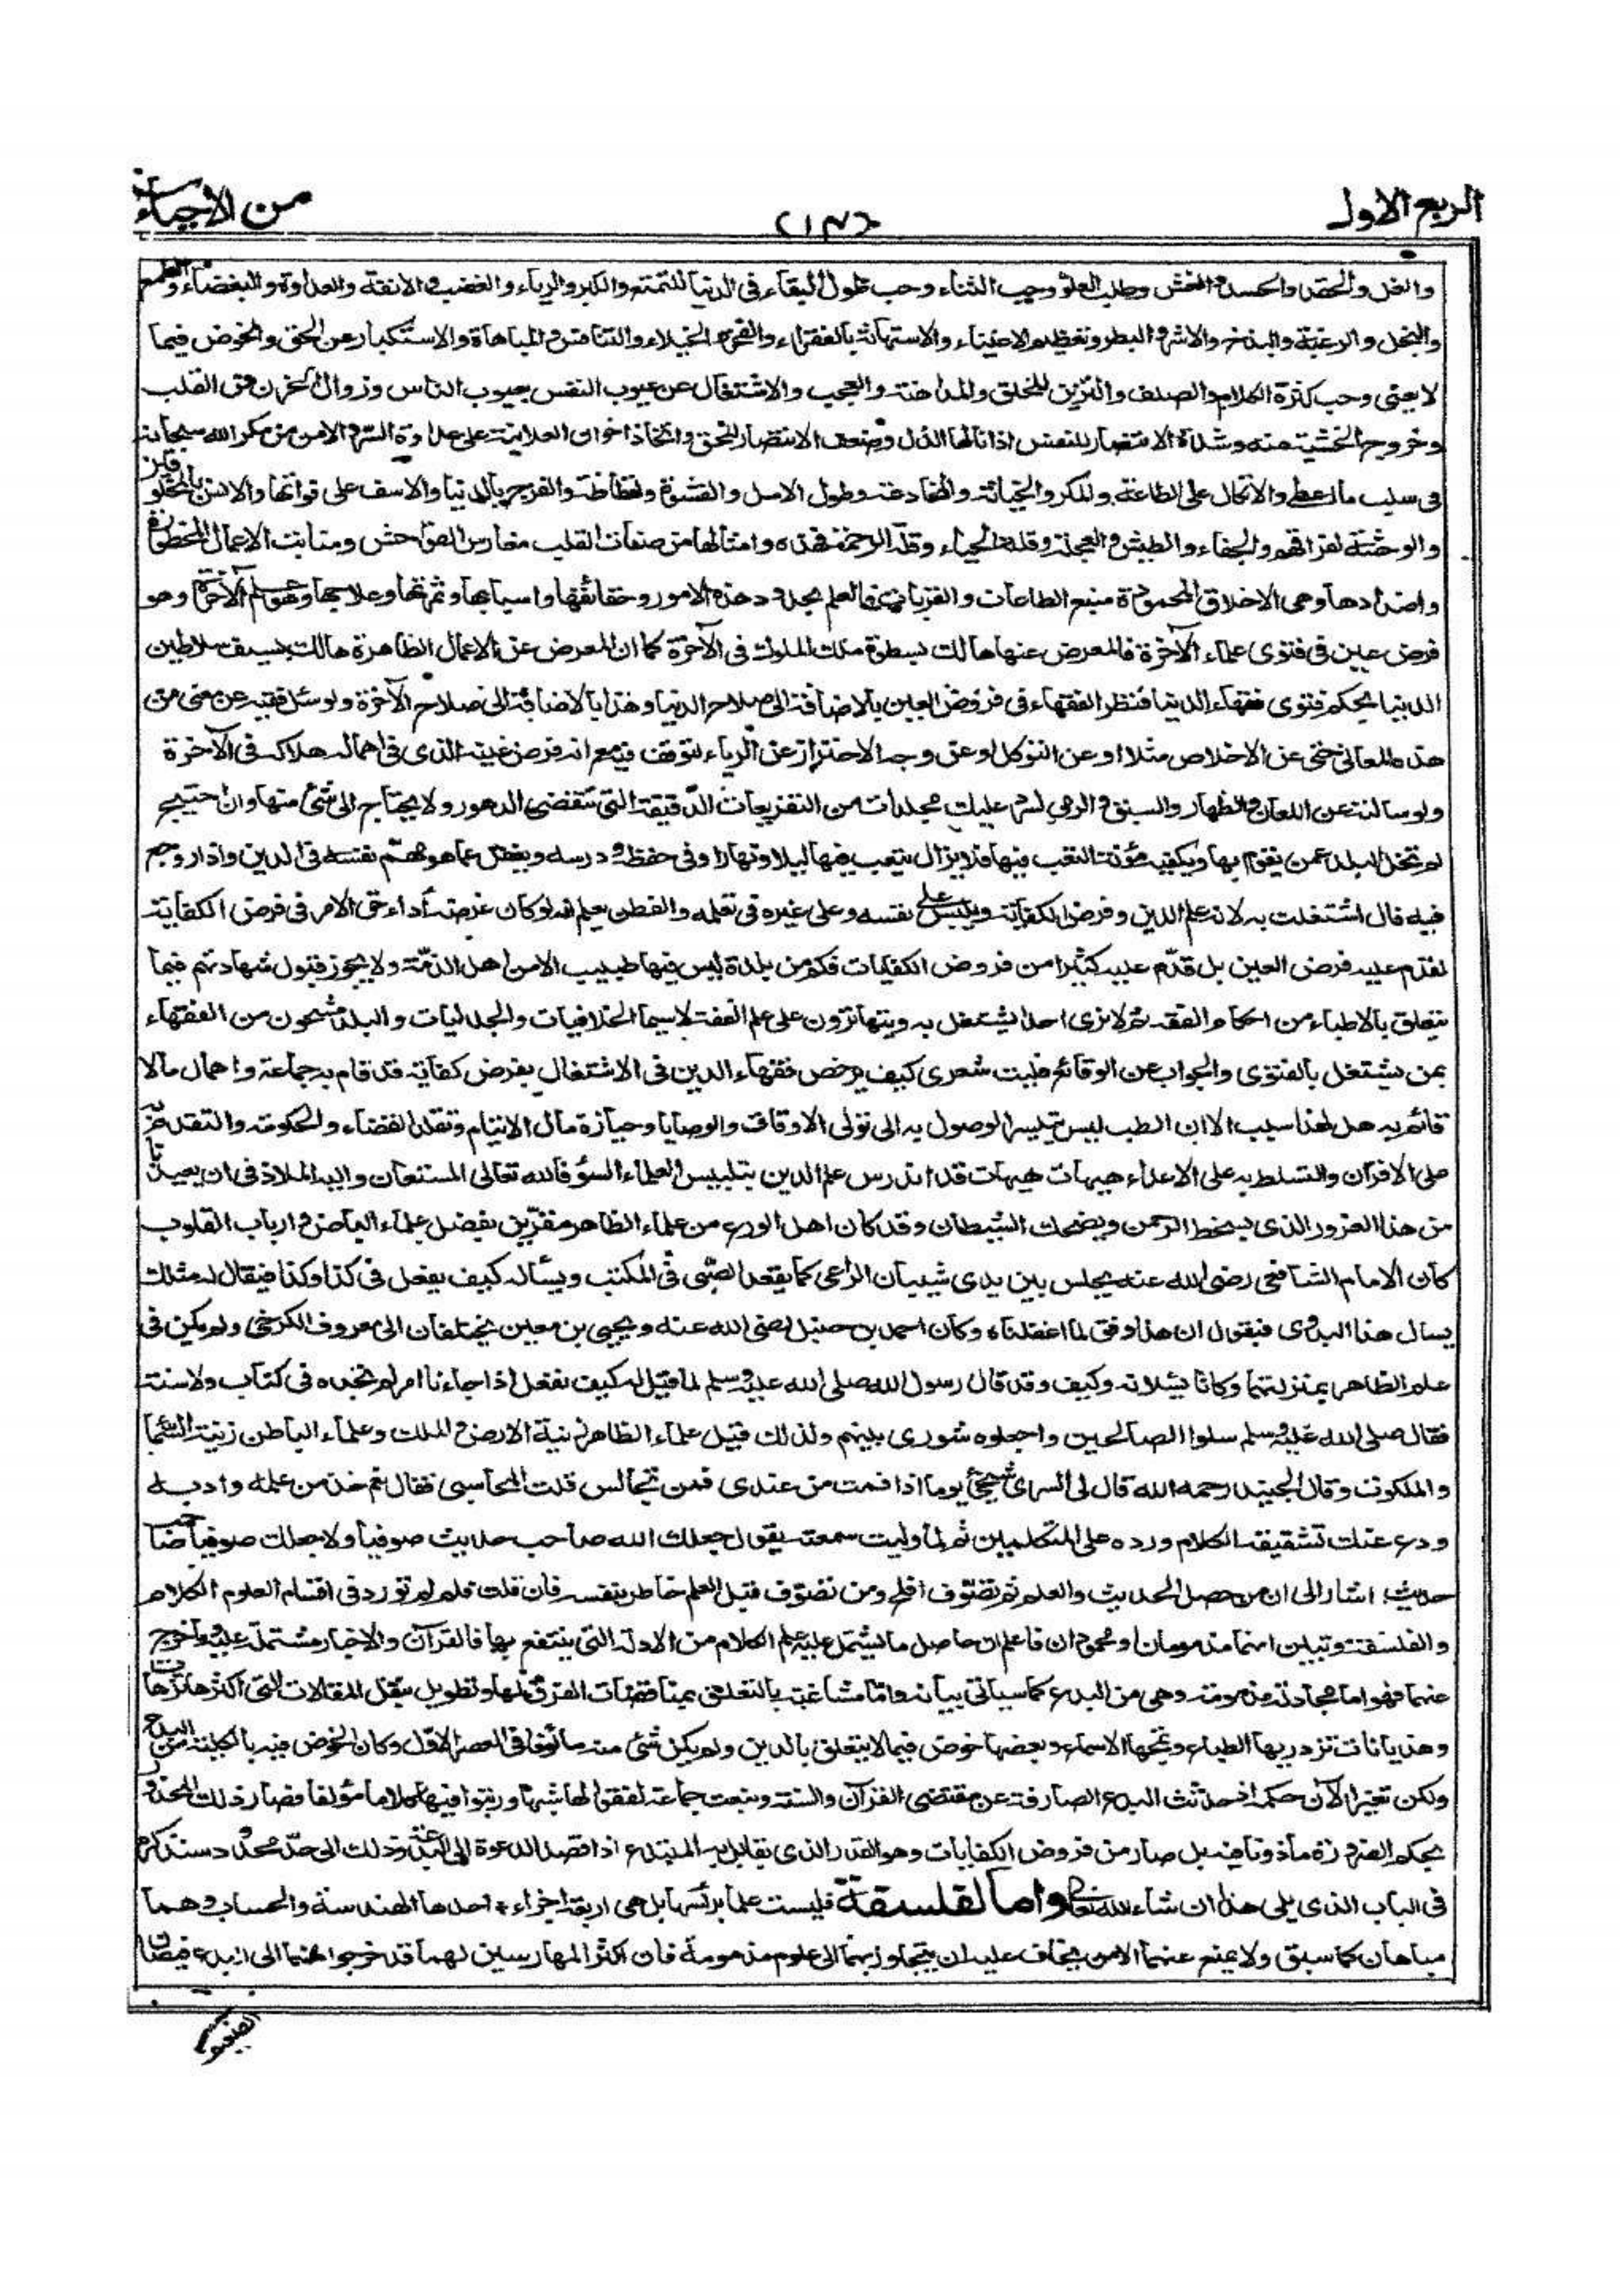 الربع الاول
(١٣)
من الاحياء
والغل والحقد والحسد والغش وطلب العلو وحب الثناء وحب طول البقاء فى الدنيا للتمتع والكبر والرياء والغضب والانفة والعداوة والبغضاء والطمع
والبخل والرغبة والبذخ والاشر والبطر وتعظيم الاغنياء والاستهانة بالفقراء والفخر والخيلاء والتنافس والمباهاة والاستكبار عن الحق والخوض فيما
لا يعنى وحب كثرة الكلام والصلف والتزين للخلق والمداهنة والعجب والاشتغال عن عيوب النفس بعيوب الناس وزوال الحزن من القلب
وخروج الخشية منه وشدة الانتصار للنفس اذا نالها الذل وضعف الانتصار للحق واتخاذ اخوان العلانية على عداوة السر والامن من مكر الله سبحانه
فى سلب ما اعطى والاتكال على الطاعة والمكر والخيانة والمخادعة وطول الامل والقسوة والفظاظة والفرح بالدنيا والاسف على فواتها والانس بالمخلوقين
والوحشة لفراقهم والجفاء والطيش والعجلة وقلة الحياء وقلة الرحمة فهذه وامثالها من صفات القلب مغارس الفواحش ومنابت الاعمال المحظورة
واضدادها وهى الاخلاق المحمودة منبع الطاعات والقربات فالعلم بحدود هذه الامور وحقائقها واسبابها وثمرتها وعلاجها هو علم الآخرة وهو
فرض عين فى فتوى علماء الآخرة فالمعرض عنها هالك بسطوة ملك الملوك فى الآخرة كما ان المعرض عن الاعمال الظاهرة هالك بسيف سلاطين
الدنيا بحكم فتوى فقهاء الدنيا فنظر الفقهاء فى فروض العين بالاضافة الى صلاح الدنيا وهذا بالاضافة الى صلاح الآخرة ولو سئل فقيه عن معنى من
هذه المعانى حتى عن الاخلاص مثلا او عن التوكل او عن وجه الاحتراز عن الرياء لتوقف فيه مع انه فرض عينه الذى فى اهماله هلاكه فى الآخرة
ولو سالته عن اللعان والظهار والسبق والرمى لسرد عليك مجلدات من التفريعات الدقيقة التى تنقضى الدهور ولا يحتاج الى شئ منها وان احتيج
لم تخل البلد عمن يقوم بها ويكفيه مؤنة التعب فيها فلا يزال يتعب فيها ليلا ونهارا وفى حفظه ودرسه ويغفل عما هو مهم نفسه فى الدين واذا روجع
فيه قال اشتغلت به لانه علم الدين وفرض الكفاية ويلبس على نفسه وعلى غيره فى تعلمه والفطن يعلم انه لو كان غرضه أداء حق الامر فى فرض الكفاية
لقدم عليه فرض العين بل قدّم عليه كثيرا من فروض الكفايات فكم من بلدة ليس فيها طبيب الا من اهل الذمّة ولا يجوز قبول شهادتهم فيما
يتعلق بالاطباء من احكام الفقه ثم لا نرى احدا يشتغل به ويتهاترون على علم الفقه لاسيما الخلافيات والجدليات والبلد مشحون من الفقهاء
بمن يشتغل بالفتوى والجواب عن الوقائع فليت شعرى كيف يرخص فقهاء الدين فى الاشتغال بفرض كفاية قد قام به جماعة واهمال مالا
قائم به هل لهذا سبب الا ان الطب ليس يتيسر الوصول به الى تولى الاوقاف والوصايا وحيازة مال الايتام وتقلد القضاء والحكومة والتقدم به
على الاقران والتسلط به على الاعداء هيهات هيهات قد اندرس علم الدين بتلبيس العلماء السوء فالله تعالى المستعان واليه الملاذ فى ان يعيذنا
من هذا الغرور الذى يسخط الرحمن ويضحك الشيطان وقد كان اهل الورع من علماء الظاهر مقرّين بفضل علماء الباطن وارباب القلوب
كان الامام الشافعى رضى الله عنه يجلس بين يدى شيبان الراعى كما يقعد الصبى فى المكتب ويسأله كيف يفعل فى كذا وكذا فيقال له مثلك
يسال هذا البدوى فيقول ان هذا وفق لما اغفلناه وكان احمد بن حنبل رضى الله عنه ويحيى بن معين يختلفان الى معروف الكرخى ولم يكن فى
علم الظاهر بمنزلتهما وكانا يسئلانه وكيف وقد قال رسول الله صلى الله عليه وسلم لما قيل له كيف نفعل اذا جاءنا امر لم نجده فى كتاب ولا سنة
فقال صلى الله عليه وسلم سلوا الصالحين واجعلوه شورى بينهم ولذلك قيل علماء الظاهر زينة الارض والملك وعلماء الباطن زينة السماء
والملكوت وقال الجنيد رحمه الله قال لى السرى شيخى يوما اذا قمت من عندى فمن تجالس قلت المحاسبى فقال نعم خذ من علمه وادبه
ودع عنك تشقيقه الكلام ورده على المتكلمين ثم لما وليت سمعته يقول جعلك الله صاحب حديث صوفيا ولا جعلك صوفيا صاحب
حديث اشار الى ان من حصل الحديث والعلم ثم تصوّف افلح ومن تصوّف قبل العلم خاطر بنفسه فان قلت فلم لم تورد فى اقسام العلوم الكلام
والفلسفة وتبين انهما مذمومان او محمودان فاعلم ان حاصل ما يشتمل عليه علم الكلام من الادلة التى ينتفع بها فالقرآن والاخبار مشتملة عليه وما خرج
عنهما فهو اما مجادلة مذمومة وهى من البدع كما سياتى بيانه واما مشاغبة بالتعلق بمناقضات الفرق لها وتطويل بنقل المقالات التى اكثرها ترهات
وهذيانات تزدريها الطباع وتمجها الاسماع وبعضها خوض فيما لا يتعلق بالدين ولم يكن شئ منه مألوفا فى العصر الاوّل وكان الخوض فيه بالكلية من البدع
ولكن تغير الآن حكمه اذ حدثت البدع الصارفة عن مقتضى القرآن والسنة ونبعت جماعة لفقوا لها شبها ورتبوا فيها كلاما مؤلفا فصار ذلك المحذور
بحكم الضرورة مأذونا فيه بل صار من فروض الكفايات وهو القدر الذى يقابل به المبتدع اذا قصد الدعوة الى البدعة وذلك الى حدّ محدود سنذكره
فى الباب الذى يلى هذا ان شاء الله تعالى واما الفلسفة فليست علما برئسها بل هى اربعة اجزاء احدها الهندسة والحساب وهما
مباحان كما سبق ولا يمنع عنهما الا من يخاف عليه ان يتجاوز بهما الى علوم مذمومة فان اكثر الممارسين لهما قد خرجوا منهما الى البدع فيصان
الضعيف